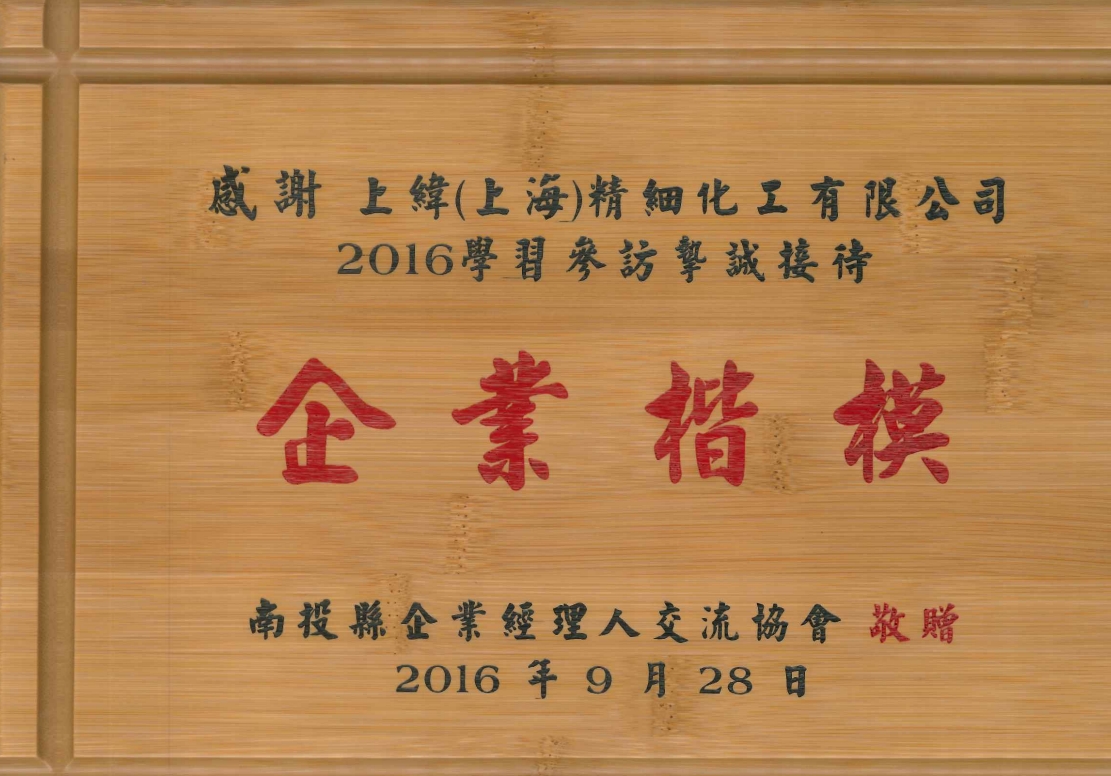 感謝 上緯(上海)精細化工有限公司
2016學習參訪摯誠接待
企業楷模
南投縣企業經理人交流協會 敬贈
2016 年 9 月 28 日